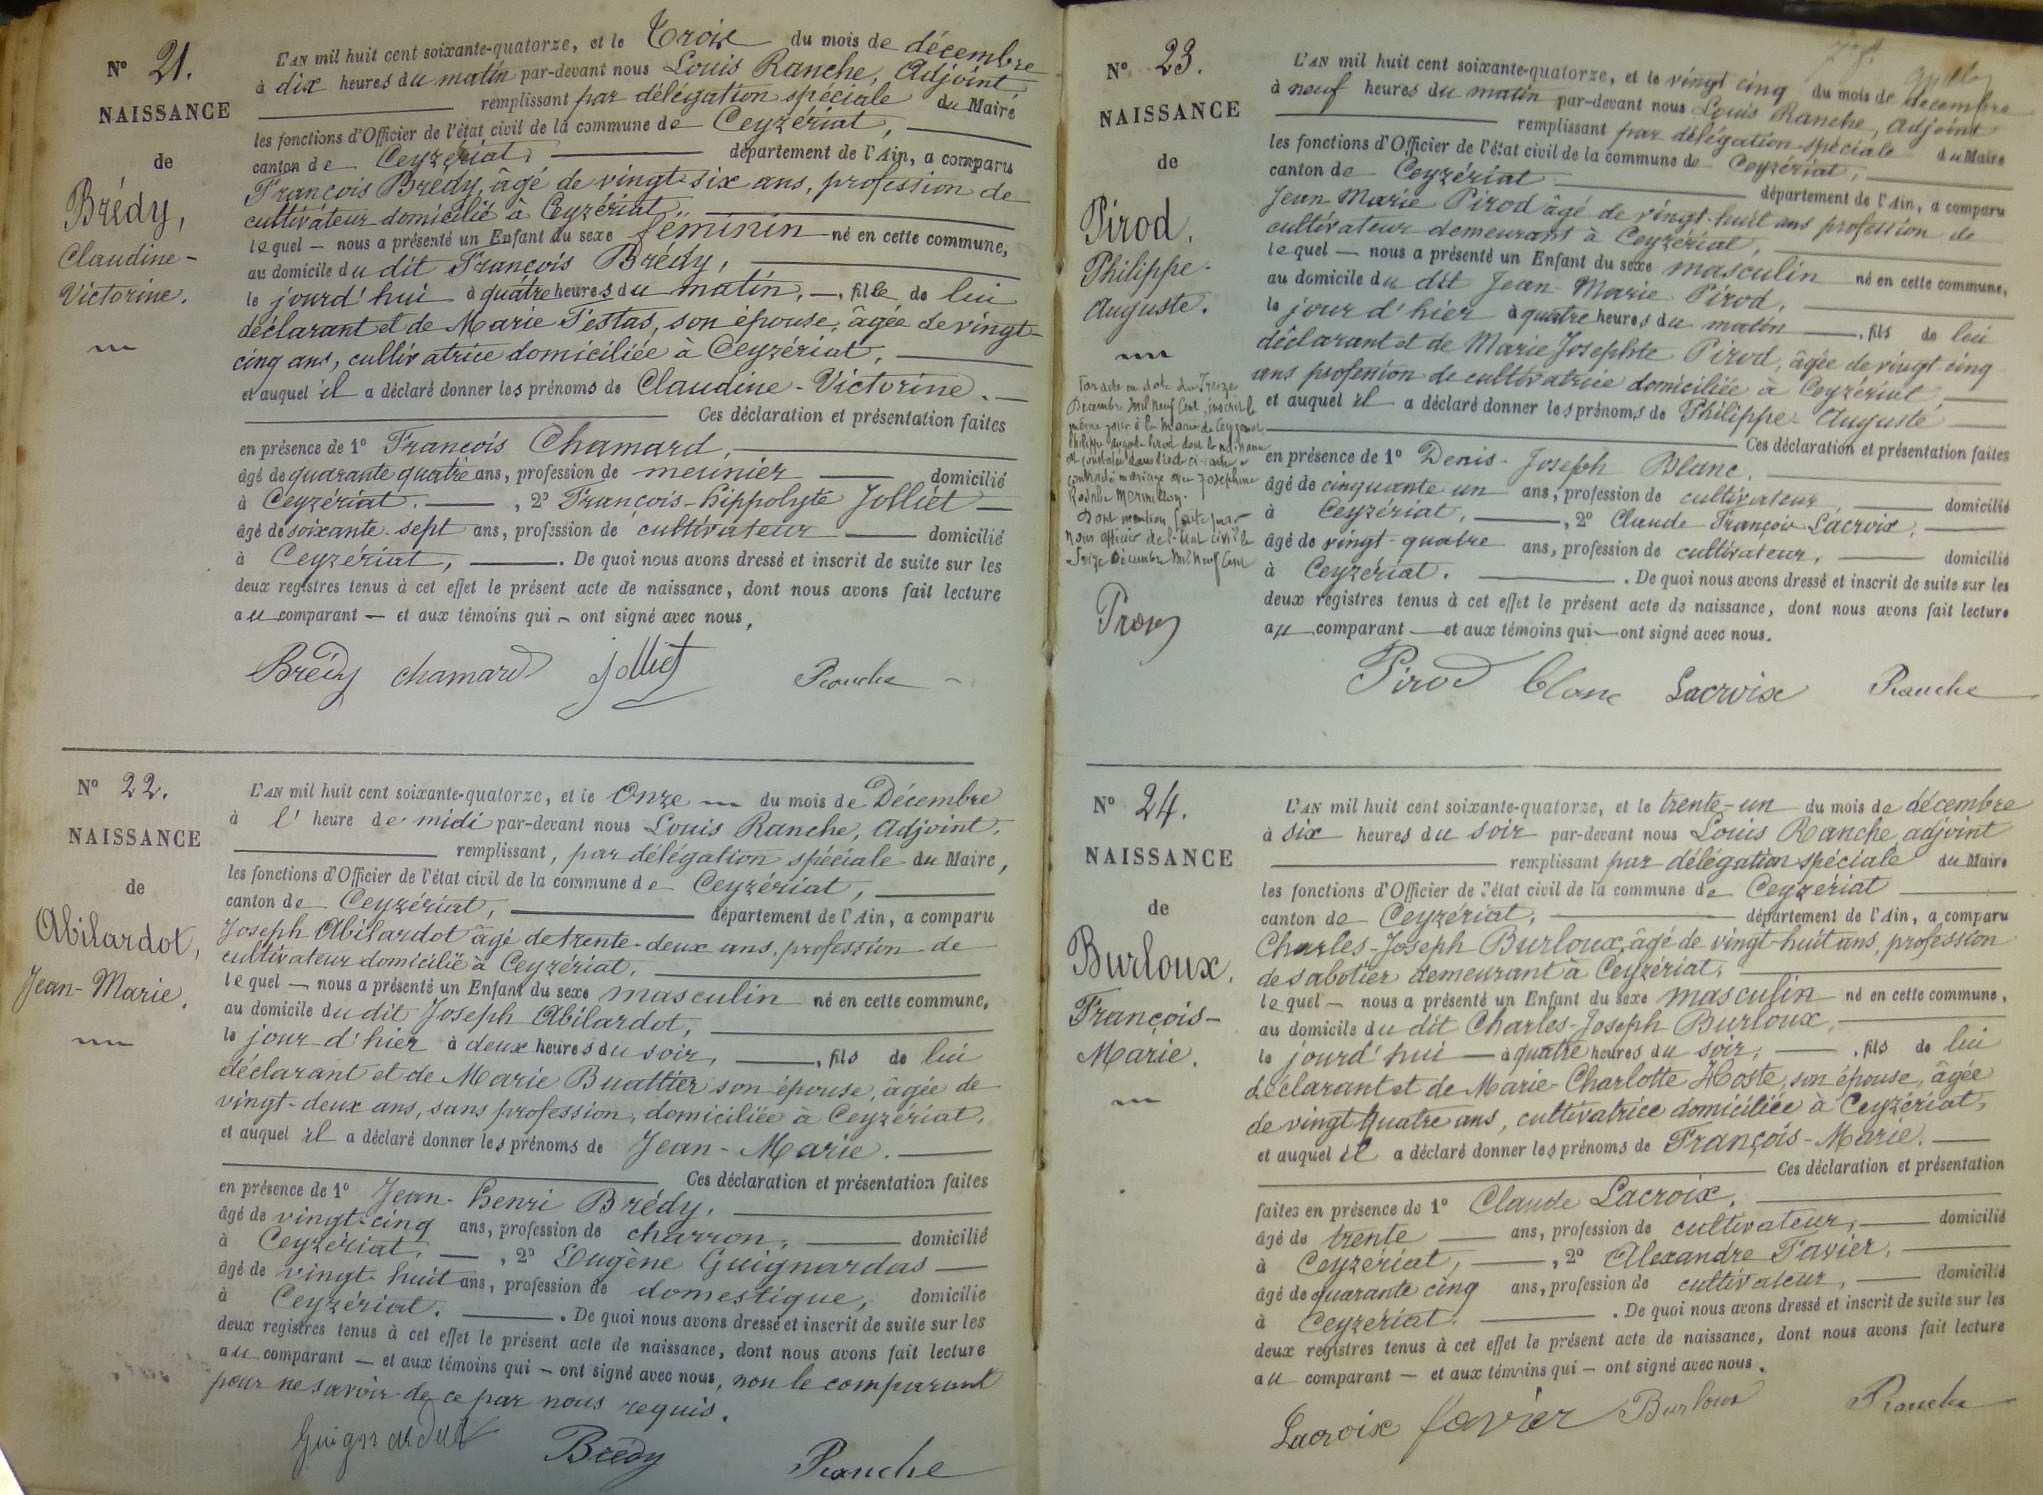 N° 21.
NAISSANCE
de
Brédy,
Claudine-
Victorine.
L'AN mil huit cent soixante-quatorze, et le Trois du mois de décembre
à dix heures du matin par-devant nous Louis Ranche, Adjoint
remplissant par délégation spéciale du Maire
les fonctions d'Officier de l'état civil de la commune de Ceyzériat,
canton de Ceyzériat, département de l'Ain, a comparu
François Brédy, âgé de vingt-six ans, profession de
cultivateur domicilié à Ceyzériat,
lequel — nous a présenté un Enfant du sexe féminin né en cette commune,
au domicile du dit François Brédy,
le jourd'hui à quatre heures du matin, fille de lui
déclarant et de Marie Testas, son épouse, âgée de vingt-
cinq ans, cultivatrice domiciliée à Ceyzériat,
et auquel il a déclaré donner les prénoms de Claudine-Victorine.
Ces déclaration et présentation faites
en présence de 1° François Chamard,
âgé de quarante quatre ans, profession de meunier domicilié
à Ceyzériat, 2° François-hippolyte Jolliet
âgé de soixante-sept ans, profession de cultivateur domicilié
à Ceyzériat, . De quoi nous avons dressé et inscrit de suite sur les
deux registres tenus à cet effet le présent acte de naissance, dont nous avons fait lecture
au comparant — et aux témoins qui — ont signé avec nous.
Brédy chamard jolliet Ranche
N° 22.
NAISSANCE
de
Abilardot,
Jean-Marie.
L'AN mil huit cent soixante-quatorze, et le Onze du mois de Décembre
à l'heure de midi par-devant nous Louis Ranche, Adjoint,
remplissant, par délégation spéciale du Maire,
les fonctions d'Officier de l'état civil de la commune de Ceyzériat,
canton de Ceyzériat, département de l'Ain, a comparu
Joseph Abilardot âgé de trente-deux ans, profession de
cultivateur domicilié à Ceyzériat,
lequel — nous a présenté un Enfant du sexe masculin né en cette commune,
au domicile du dit Joseph Abilardot,
le jour d'hier à deux heures du soir, fils de lui
déclarant et de Marie Buattier son épouse, âgée de
vingt-deux ans, sans profession, domiciliée à Ceyzériat,
et auquel il a déclaré donner les prénoms de Jean-Marie.
Ces déclaration et présentation faites
en présence de 1° Jean-henri Brédy,
âgé de vingt-cinq ans, profession de charron, domicilié
à Ceyzériat, 2° Eugène Guignardas
âgé de vingt-huit ans, profession de domestique, domicilié
à Ceyzériat. . De quoi nous avons dressé et inscrit de suite sur les
deux registres tenus à cet effet le présent acte de naissance, dont nous avons fait lecture
au comparant — et aux témoins qui — ont signé avec nous, non le comparant
pour ne savoir de ce par nous requis.
Brédy Ranche
N° 23.
NAISSANCE
de
Pirod,
Philippe-
Auguste.
décembre mil neuf cent, inscrit le
même jour à la mairie de
Philippe Auguste Pirod dont la naissance
contracté mariage avec Josephine
Dont mention faite par
nous officier de l'état civil le
Seize Décembre mil neuf cent
L'AN mil huit cent soixante-quatorze, et le vingt cinq du mois de décembre
à neuf heures du matin par-devant nous Louis Ranche, adjoint
remplissant par délégation spéciale du Maire
les fonctions d'Officier de l'état civil de la commune de Ceyzériat,
canton de Ceyzériat département de l'Ain, a comparu
Jean-Marie Pirod âgé de vingt-huit ans profession de
cultivateur demeurant à Ceyzériat,
lequel — nous a présenté un Enfant du sexe masculin né en cette commune,
au domicile du dit Jean-Marie Pirod,
le jour d'hier à quatre heures du matin, fils de lui
déclarant et de Marie Josephte Pirod, âgée de vingt cinq
ans profession de cultivatrice domiciliée à Ceyzériat
et auquel il a déclaré donner les prénoms de Philippe-Auguste
Ces déclaration et présentation faites
en présence de 1° Denis-Joseph Blanc,
âgé de cinquante un ans, profession de cultivateur, domicilié
à Ceyzériat, 2° Claude François Lacroix,
âgé de vingt-quatre ans, profession de cultivateur, domicilié
à Ceyzériat. . De quoi nous avons dressé et inscrit de suite sur les
deux registres tenus à cet effet le présent acte de naissance, dont nous avons fait lecture
au comparant — et aux témoins qui — ont signé avec nous.
Pirod blanc Lacroix Ranche
N° 24.
NAISSANCE
de
Burloux,
François-
Marie.
L'AN mil huit cent soixante-quatorze, et le trente-un du mois de décembre
à six heures du soir par-devant nous Louis Ranche, adjoint
remplissant par délégation spéciale du Maire
les fonctions d'Officier de l'état civil de la commune de Ceyzériat
canton de Ceyzériat, département de l'Ain, a comparu
Charles-Joseph Burloux, âgé de vingt-huit ans, profession
de sabotier demeurant à Ceyzériat,
lequel — nous a présenté un Enfant du sexe masculin né en cette commune,
au domicile du dit Charles-Joseph Burloux,
le jourd'hui à quatre heures du soir, fils de lui
déclarant et de Marie-Charlotte Hoste, son épouse, âgée
de vingt quatre ans, cultivatrice domiciliée à Ceyzériat,
et auquel il a déclaré donner les prénoms de François-Marie.
Ces déclaration et présentation
faites en présence de 1° Claude Lacroix,
âgé de trente ans, profession de cultivateur, domicilié
à Ceyzériat, 2° Alexandre Favier,
âgé de quarante cinq ans, profession de cultivateur, domicilié
à Ceyzériat. . De quoi nous avons dressé et inscrit de suite sur les
deux registres tenus à cet effet le présent acte de naissance, dont nous avons fait lecture
au comparant — et aux témoins qui — ont signé avec nous.
Lacroix favier Burloux Ranche